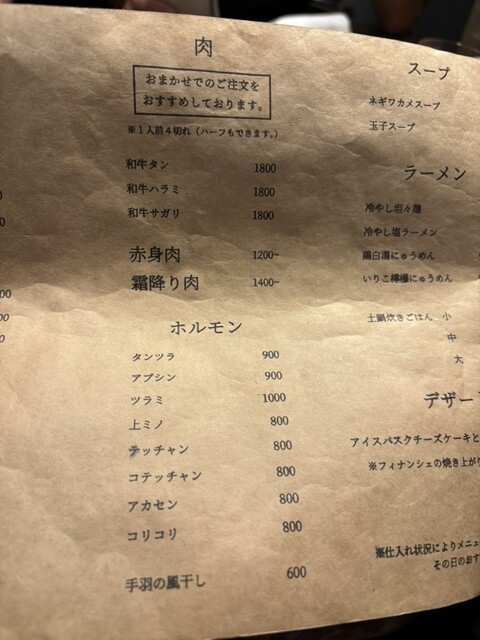 肉
おまかせでのご注文を
おすすめしております。
※1人前4切れ（ハーフもできます。）
和牛タン 1800
和牛ハラミ 1800
和牛サガリ 1800
赤身肉 1200~
霜降り肉 1400~
ホルモン
タンツラ 900
アブシン 900
ツラミ 1000
上ミノ 800
テッチャン 800
コテッチャン 800
アカセン 800
コリコリ 800
手羽の風干し 600
スープ
ネギワカメスープ
玉子スープ
ラーメン
冷やし坦々麺
冷やし塩ラーメン
鶏白湯にゅうめん
いりこ檸檬にゅうめん
土鍋炊きごはん 小
中
大
デザー
アイスバスクチーズケーキと
※フィナンシェの焼き上が
※仕入れ状況によりメニュ
その日のおす